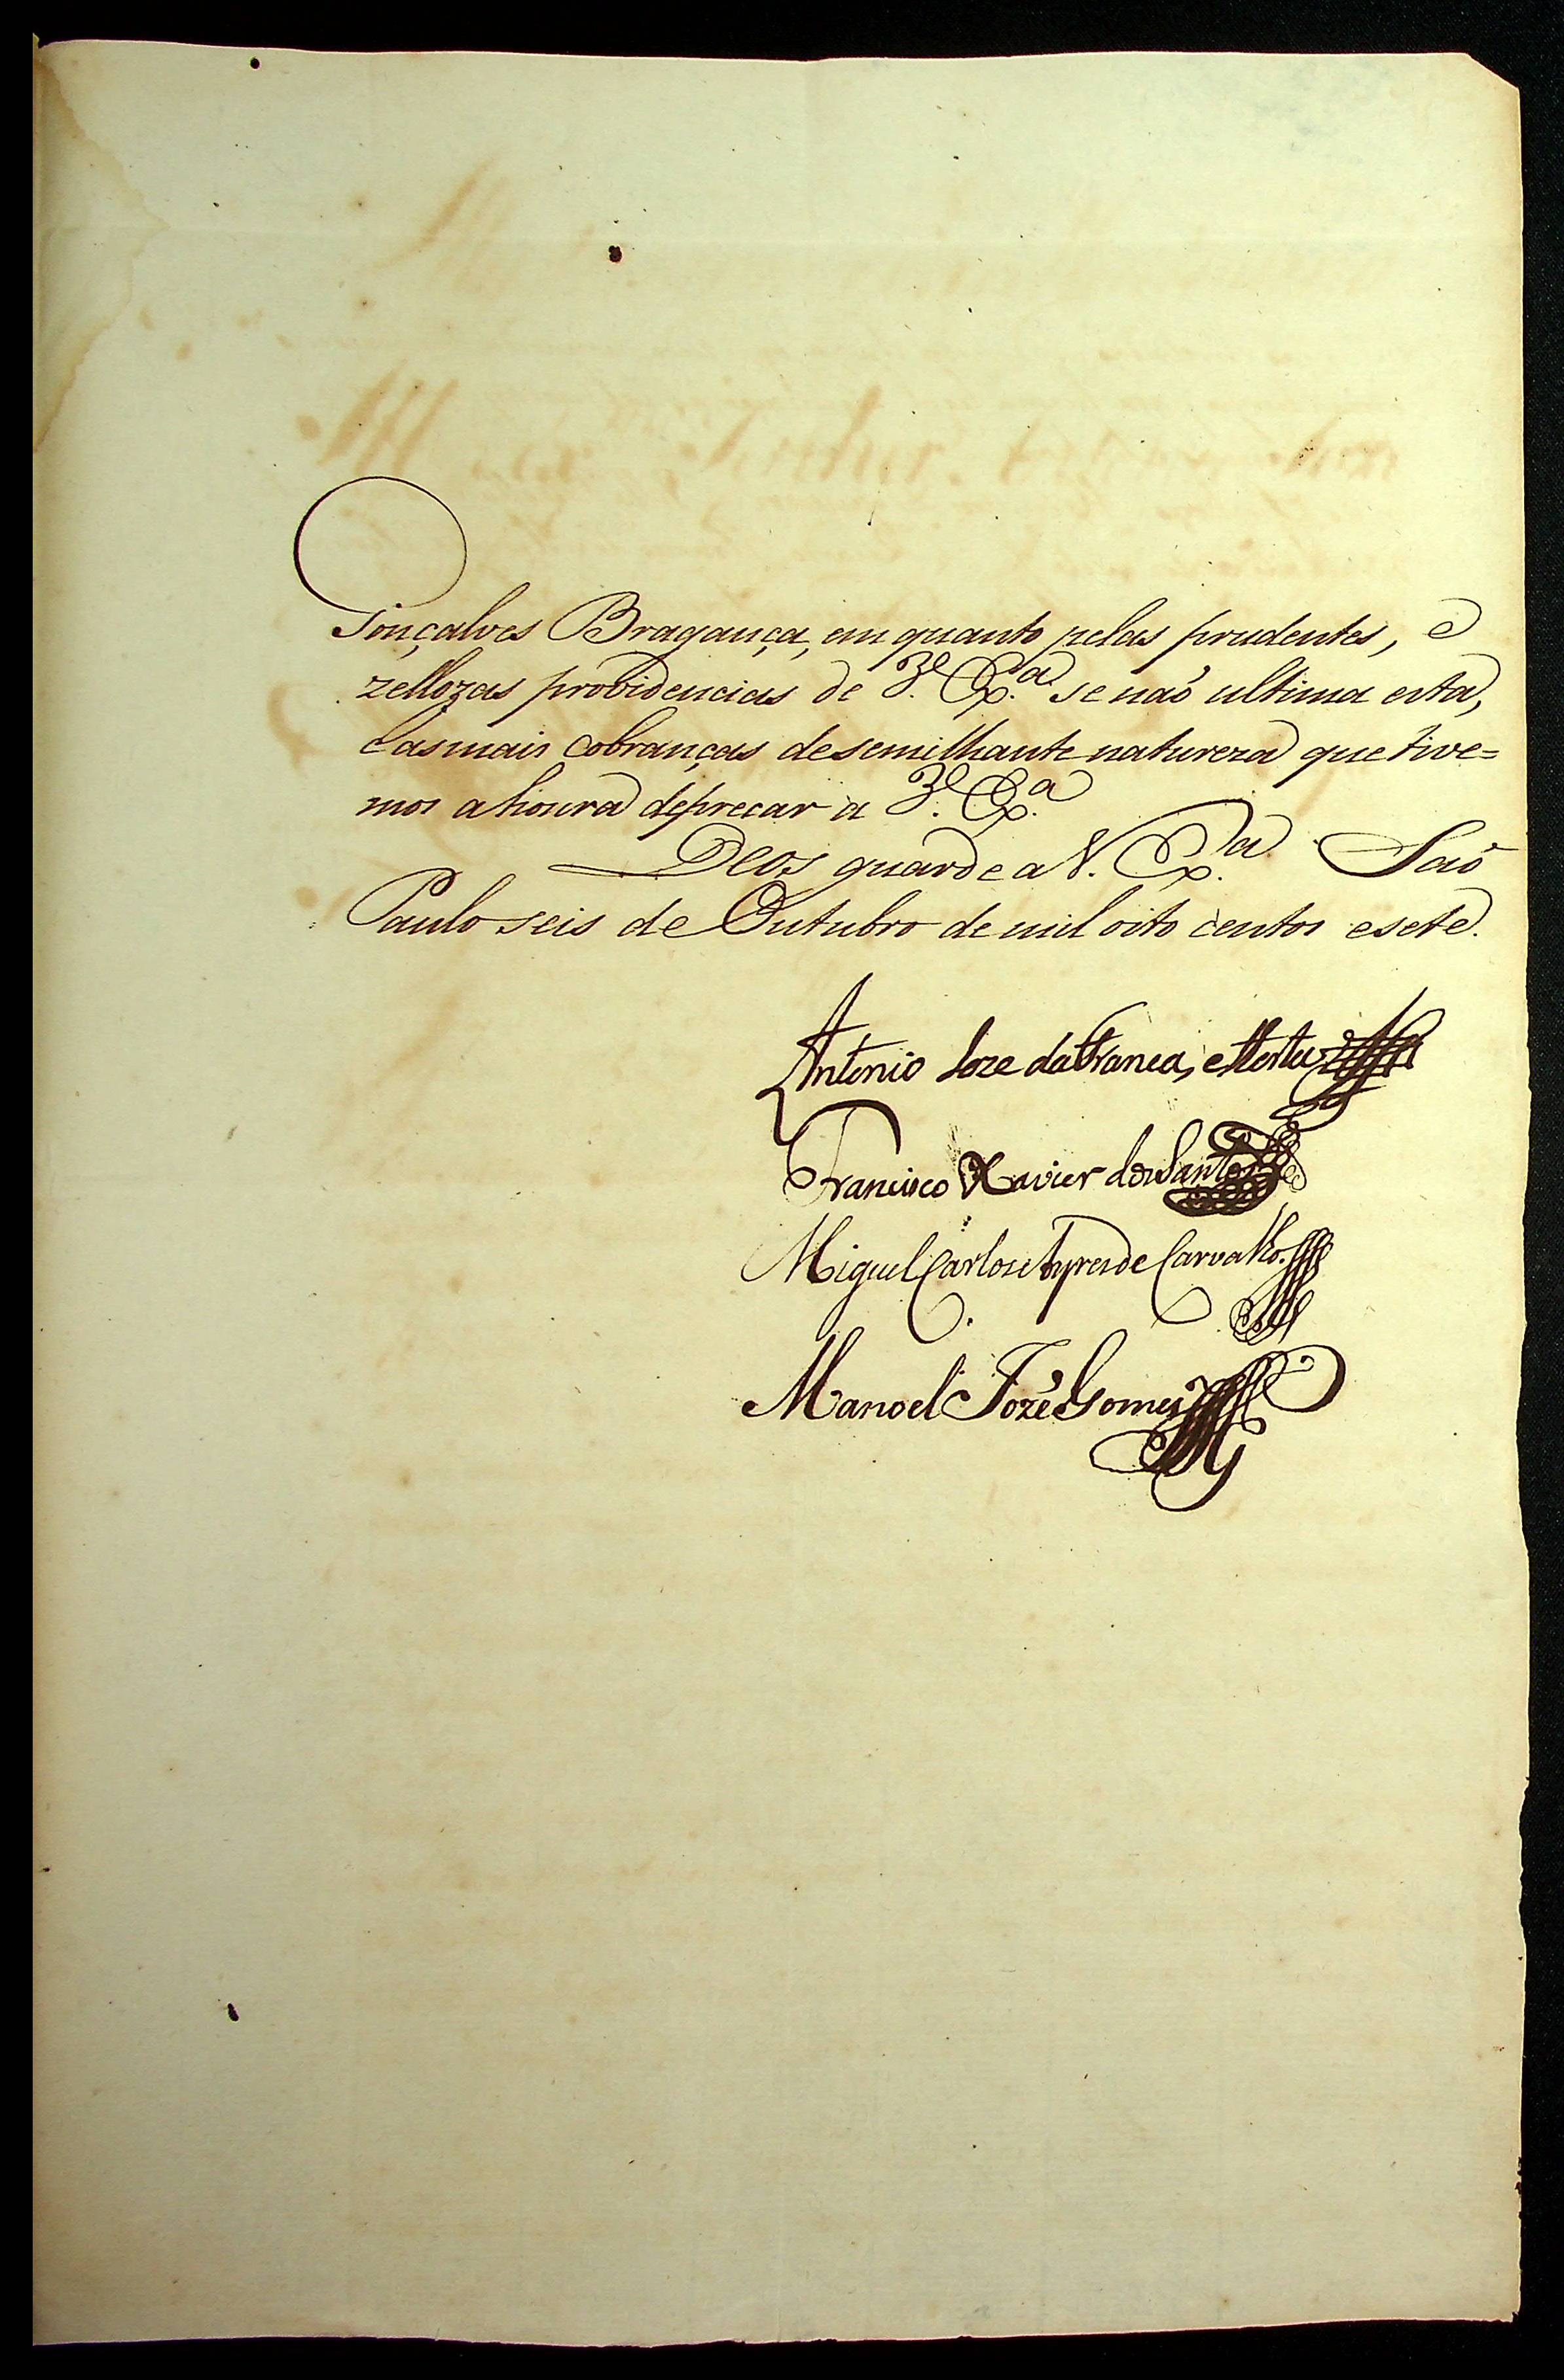 Gonçalves Bragança, em quanto pelas prudentes, e
zellozas providencias de V. Ex.ª se naõ ultima esta,
e as mais cobranças de semilhante natureza que tive=
mos a honra deprecar a V. Ex.ª
Deos guarde a V. Ex.ª Saõ
Paulo seis de Outubro de mil oito centos e sete.
Antonio Joze da Franca, e Horta
Francisco Xavier dos Santos
Miguel Carlos Ayres de Carvalho.
Manoel Jozé Gomes